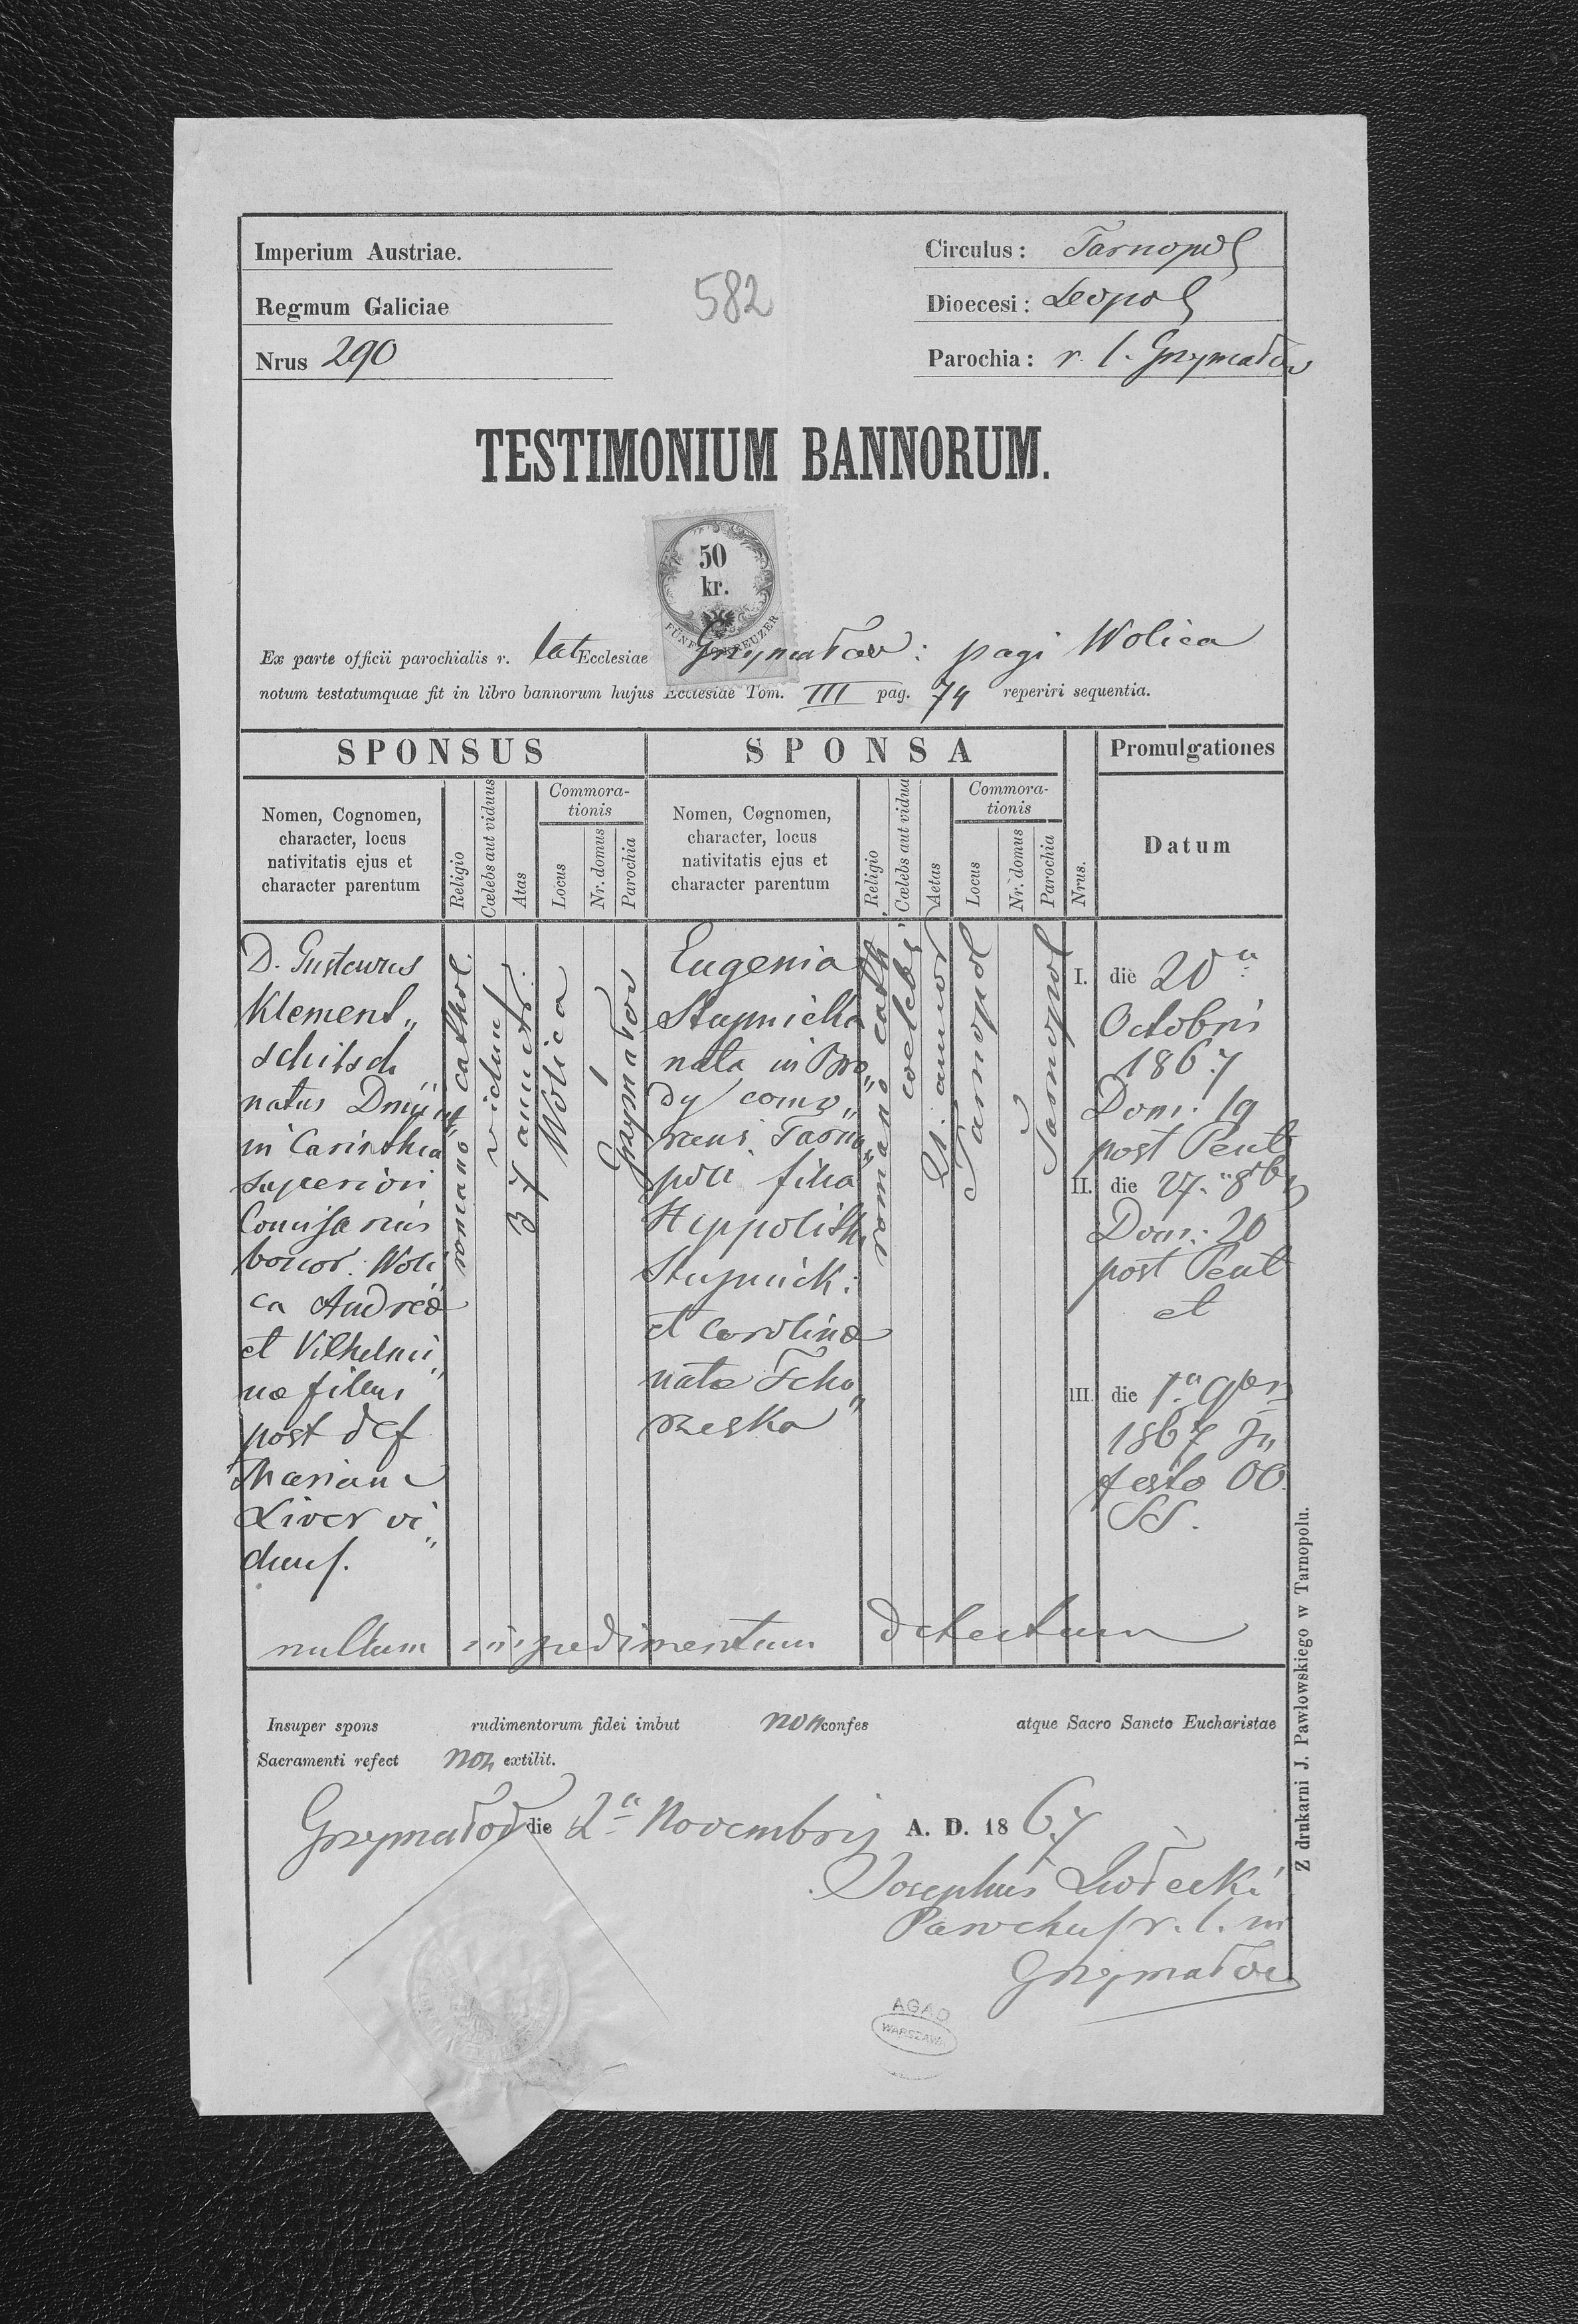 Imperium Austriae.
Circulus: Tarnopol
Regmum Galiciae
582
Dioecesi: Leopol
Nrus 290
Parochia: r. l. Grzymałow
TESTIMONIUM BANNORUM.
50
kr.
FÜNFZIG KREUZER
Ex parte officii parochialis r. lat Ecclesiae Grzymałow: pagi Wolica
notum testatumquae fit in libro bannorum hujus Ecclesiae Tom. III pag. 74 reperiri sequentia.
SPONSUS
SPONSA
Promulgationes
Nomen, Cognomen,
character, locus
nativitatis ejus et
character parentum
Religio
Cœlebs aut viduus
Atas
Commora-
tionis
Locus
Nr. domus
Parochia
Nomen, Cognomen,
character, locus
nativitatis ejus et
character parentum
Religio
Cœlebs aut vidua
Aetas
Commora-
tionis
Locus
Nr. domus
Parochia
Nrus.
Datum
D. Gustavus
Klement„
schitsch
natus
in Carinthia
superiori
Comissarius
bonor. Woli
ca Andreæ
et Vilhelmi„
næ filius
post def
Marian
Liver vi„
duus.
romano cathol.
viduus
37 annor.
Wolica
Grzymałow
Eugenia
Stupnicka
nata in Bro„
dy como„
rans Tarno„
poli filia
Hippolith
Stupnick:
et Carolinæ
natæ Tcho„
rzeska
romano cath
coelebs
21 annor
Tarnopol
Tarnopol
I. die 20a
Octobris
1867
Dom: 19
post Pent
II. die 27. 8br
Dom: 20
post Pent
et
III. die 1a 9br
1867 In„
festo OO.
SS.
nullum impedimentum detectum
Insuper spons rudimentorum fidei imbut non confes atque Sacro Sancto Eucharistae
Sacramenti refect non extilit.
Grzymałow die 2a Novembris A. D. 1867
Josephus
Parochus r. l. in
Grzymałow
AGAD
WARSZAWA
Z drukarni J. Pawłowskiego w Tarnopolu.